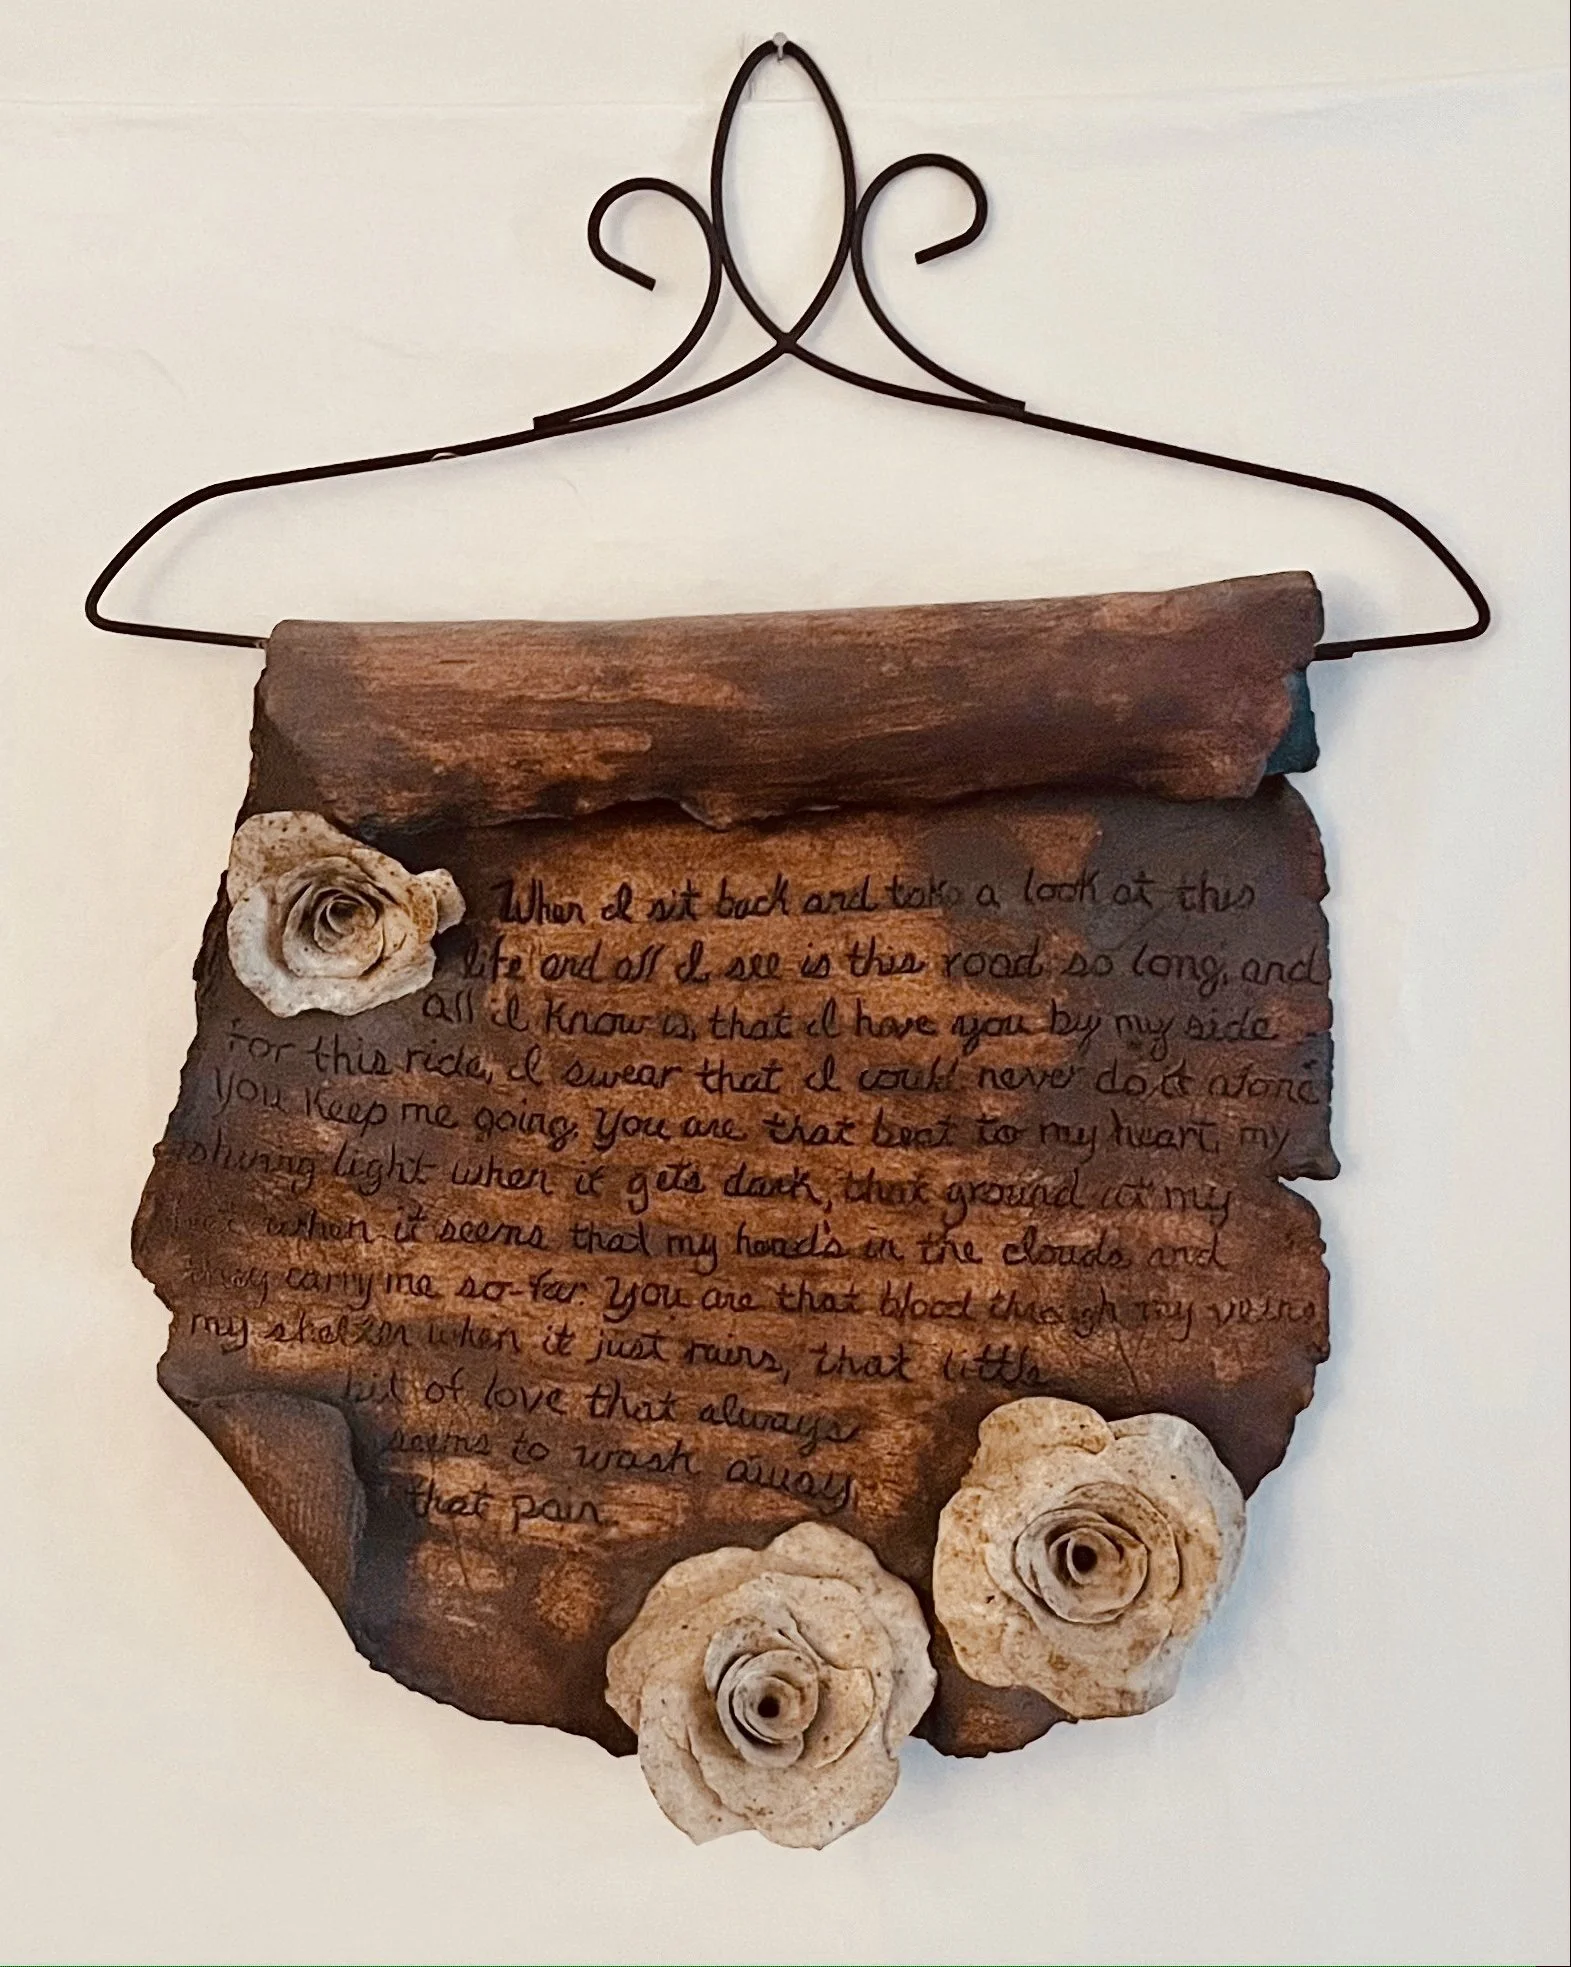 When I sit back and take a look at this
life and all I see is this road so long, and
all I know is, that I have you by my side
For this ride, I swear that I could never do it alone
you keep me going. You are that beat to my heart, my
shining light when it gets dark, that ground at my
when it seems that my head's in the clouds and
they carry me so far. You are that blood through my veins
my shelter when it just rains, that little
bit of love that always
seems to wash away
that pain.